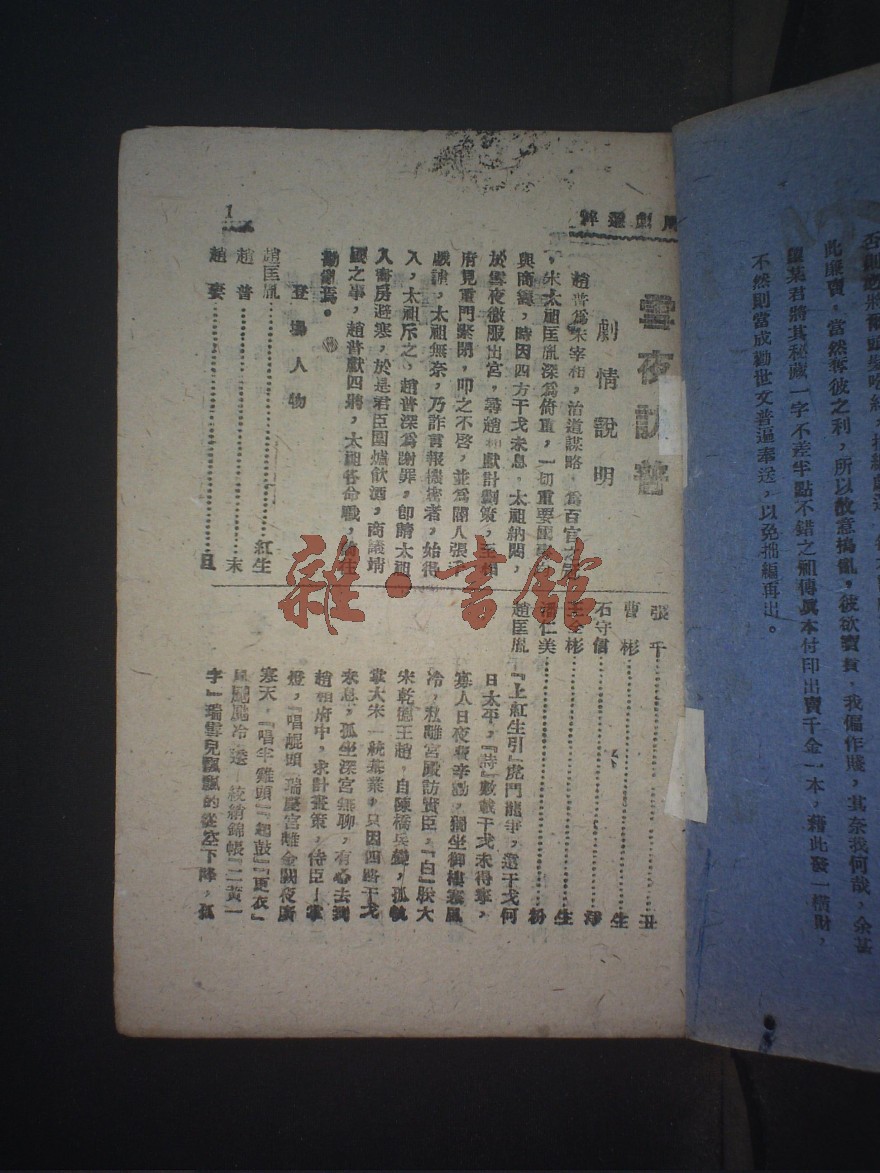 此廉賣,當然奪彼之利,所以故意搗亂,彼欲寶貴,我偏作賤,其奈我何哉,余甚
葉君將其秘藏一字不差半點不錯之祖傳眞本付印出賣千金一本,藉此發一橫財,
不然則當成勸世文普遍奉送,以免拙編再出。
劇選粹
雪夜訪普
劇情說明
趙普爲宋宰相,治道謀略,爲百官之
,宋太祖匡胤深爲倚重,一切重要
與商,時因四方干戈未息,太祖納悶,
於雪夜微服出宮,尋趙相獻計劃策,至相
府見重門緊閉,叩之不啓,並爲閽人張千
戲謔,太祖無奈,乃詐言報機密者,始得
入,太祖斥之,趙普深爲謝罪,卽請太祖
入書房避寒,於是君臣圍爐飲酒,商議靖
國之事,趙普獻四將,太祖各命戰,
焉。
登場人物
趙匡胤…………紅生
趙普…………末
趙妻…………旦
張千…………丑
曹彬…………生
石守信…………淨
王全彬…………生
仁美…………粉
趙匡胤『上紅生引』虎鬥龍爭,還干戈何
日太平,『詩』數載干戈未得寧,
寡人日夜費辛勤,獨坐御樓寒風
冷,私離宮殿訪賢臣,『白』朕大
宋乾德王趙,自陳橋兵變,孤執
掌大宋一統基業,只因四路干戈
未息,孤坐深宮無聊,有心去到
趙相府中,求計畫策,侍臣—掌
燈,『唱崑頭』瑞慶宮離金闕夜廣
寒天,『唱半雞頭』『起鼓』『更衣』
風颼颼冷透—絞綃錦帳『二黃一
字』瑞雪兒飄飄的從空下降,孤
1
雜·書館